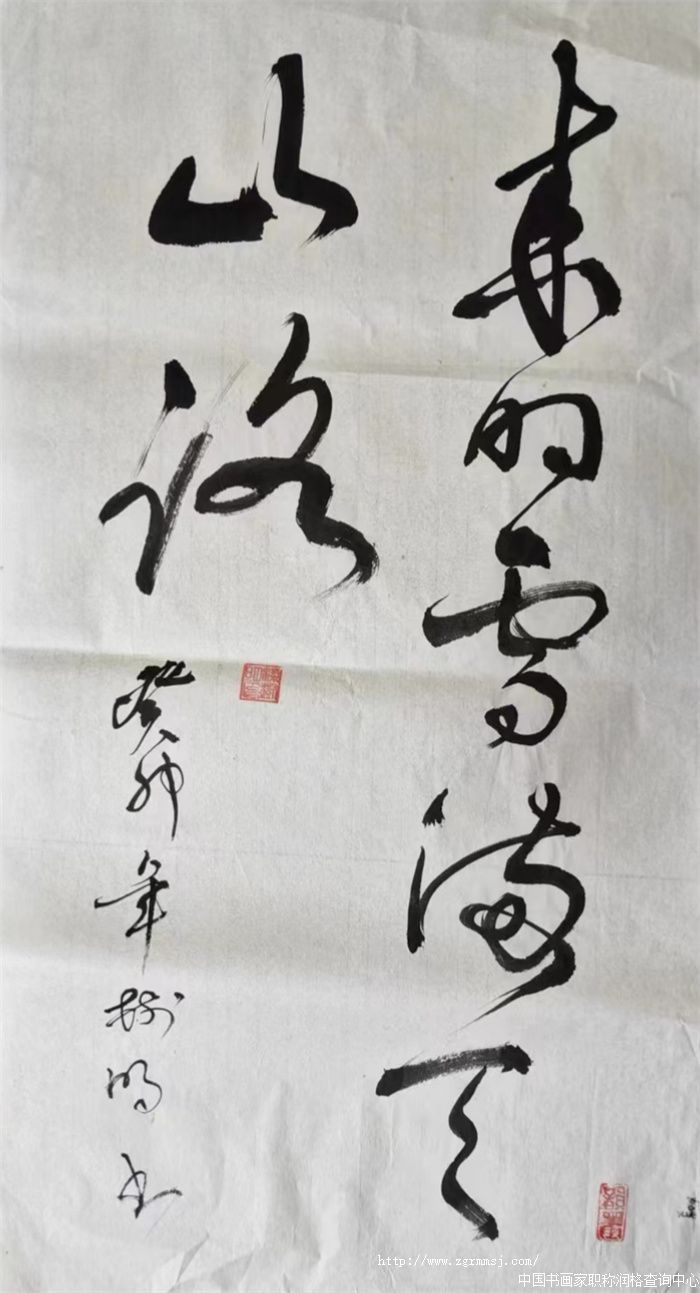 来时雪满天
山路
癸卯年树 书
http://www.zgrmmsj.com/
中国书画家职称润格查询中心